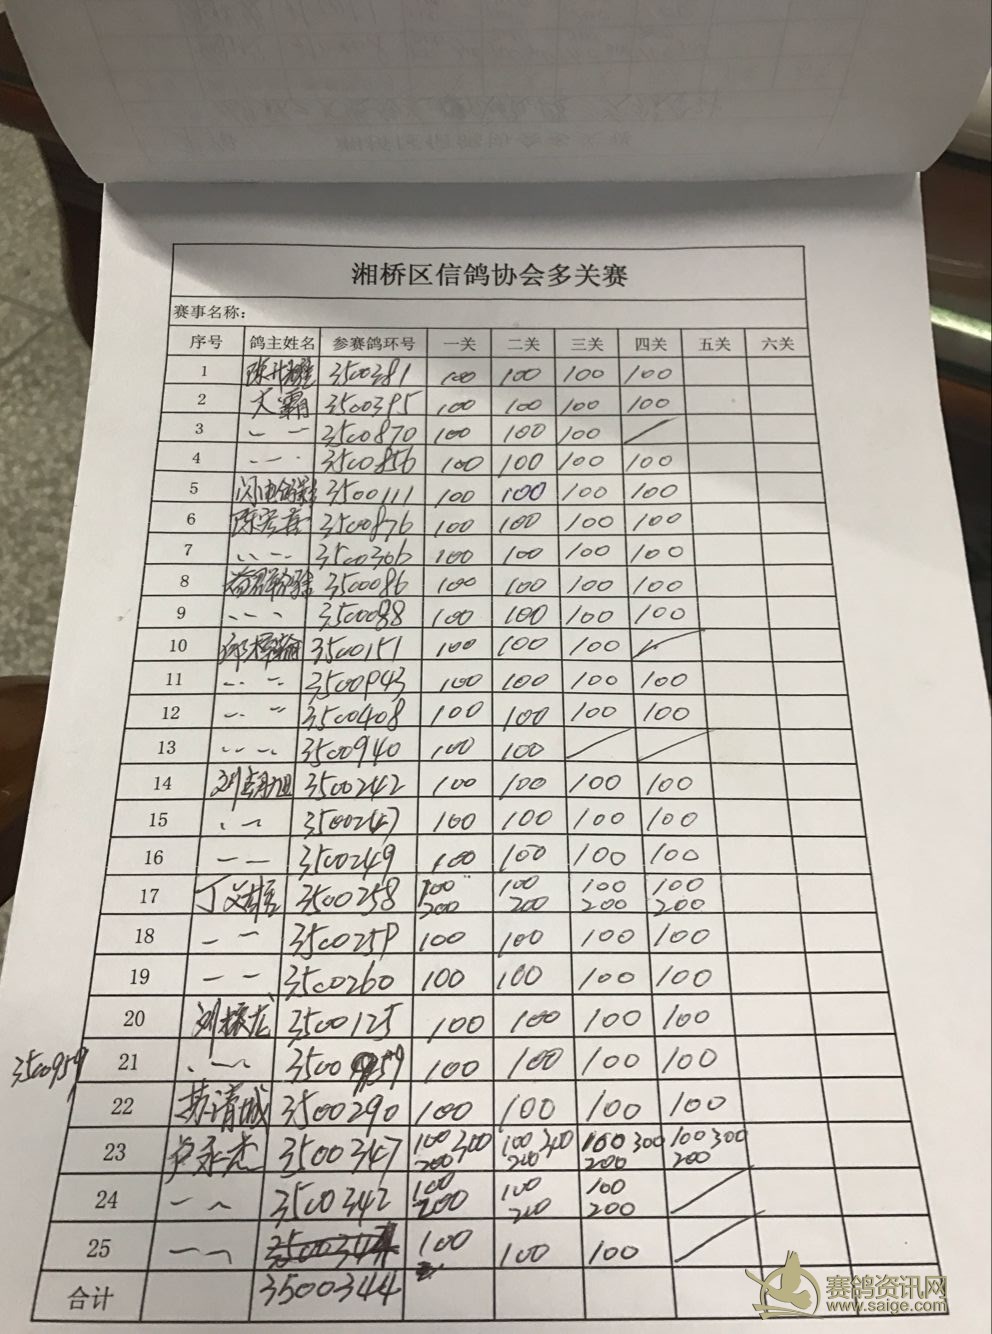 湘桥区信鸽协会多关赛
赛事名称:
序号 鸽主姓名 参赛鸽环号 一关 二关 三关 四关 五关 六关
1 3500381 100 100 100 100
2 大霸 3500395 100 100 100 100
3 3500870 100 100 100
4 3500856 100 100 100 100
5 3500111 100 100 100 100
6 3500876 100 100 100 100
7 3500306 100 100 100 100
8 3500086 100 100 100 100
9 3500088 100 100 100 100
10 3500151 100 100 100
11 3500943 100 100 100 100
12 3500408 100 100 100 100
13 3500940 100 100
14 3500242 100 100 100 100
15 3500247 100 100 100 100
16 3500249 100 100 100 100
17 丁文雄 3500258 100 100 100 100
200 200 200 200
18 3500259 100 100 100 100
19 3500260 100 100 100 100
20 刘振龙 3500125 100 100 100 100
3500959 21 3500959 100 100 100 100
22 苏清城 3500290 100 100 100 100
23 卢永杰 3500347 100 300 100 300 100 300 100 300
200 200 200 200
24 3500342 100 100 100
200 200 200
25 100 100 100
合计 3500344
赛鸽资讯网
www.saige.com